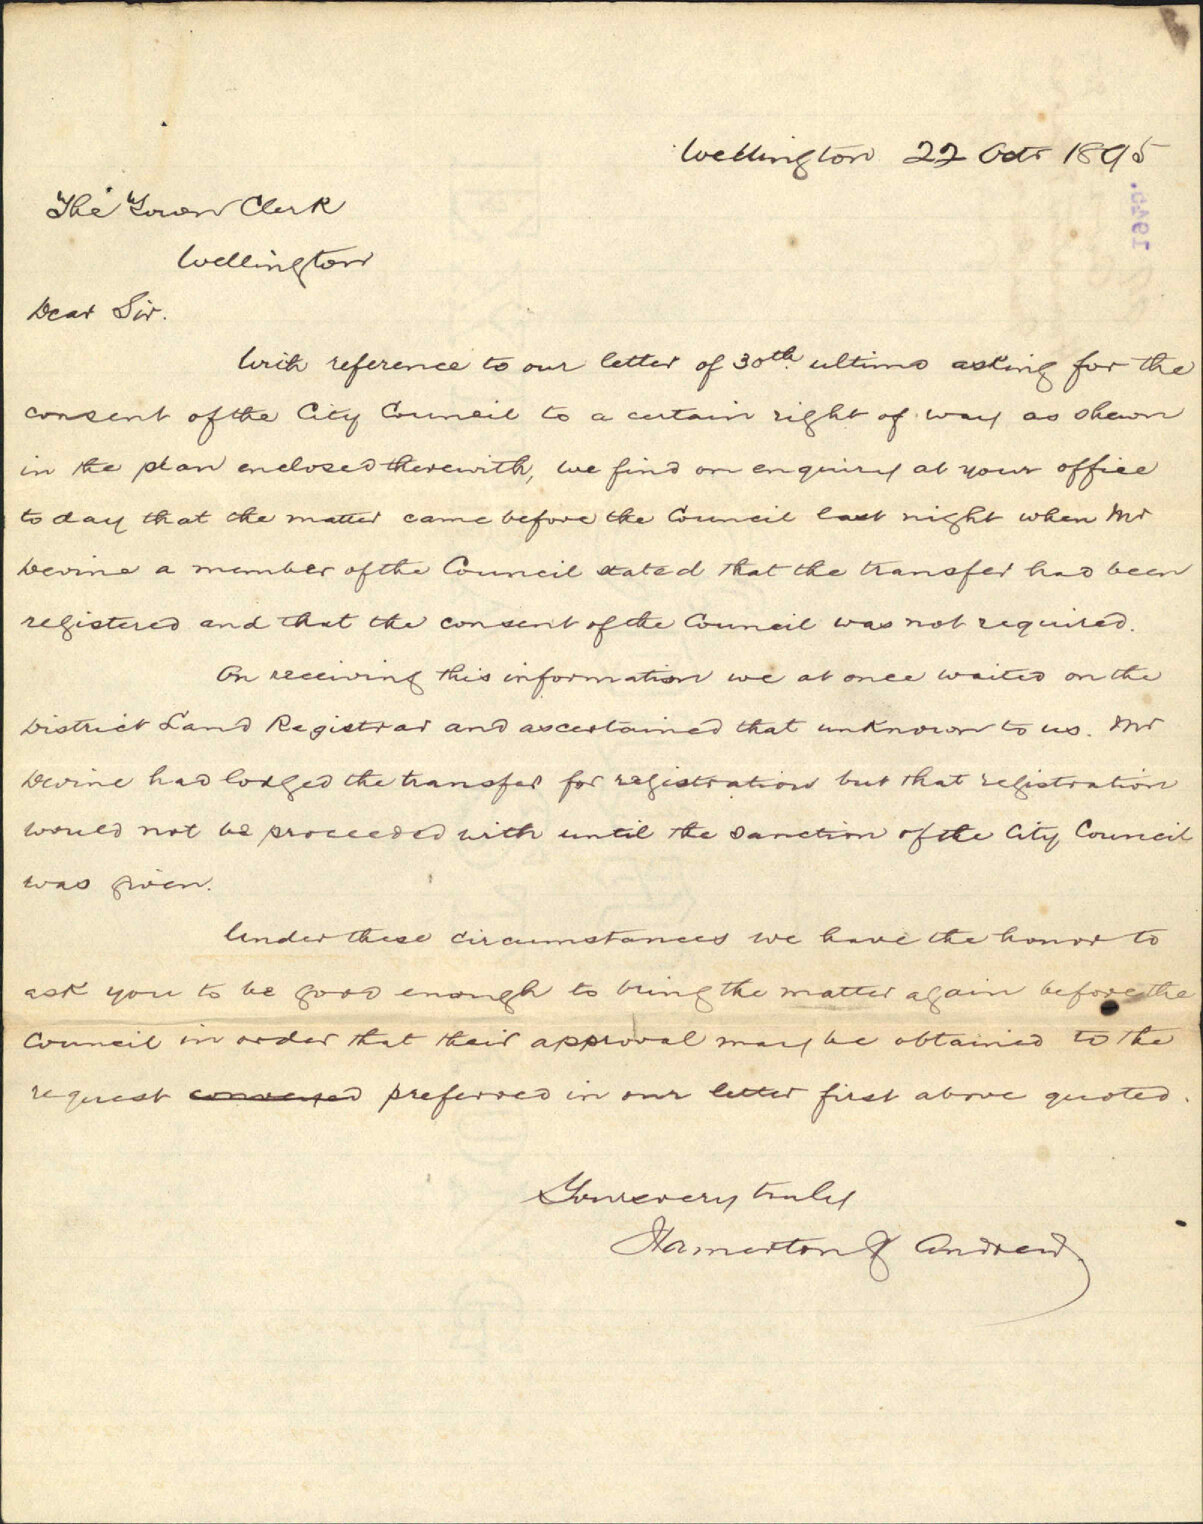 Wellington 22 Octr 1895
The Town Clerk
Wellington
Dear Sir.
With reference to our letter of 30th ultimo asking for the
consent of the City Council to a certain right of way as shewn
in the plan enclosed therewith, we find on enquiry at your office
to day that the matter came before the Council last night when Mr
Devine a member of the Council stated that the transfer had been
registered and that the consent of the Council was not required.
On receiving this information we at once waited on the
District Land Registrar and ascertained that unknown to us. Mr
Devine had lodged the transfer for registration but that registration
would not be proceeded with until the sanction of the City Council
was given.
Under these circumstances we have the honor to
ask you to be good enough to bring the matter again before the
Council in order that their approval may be obtained to the
request preferred in our letter first above quoted.
Yours very truly
Hamerton & Andrew